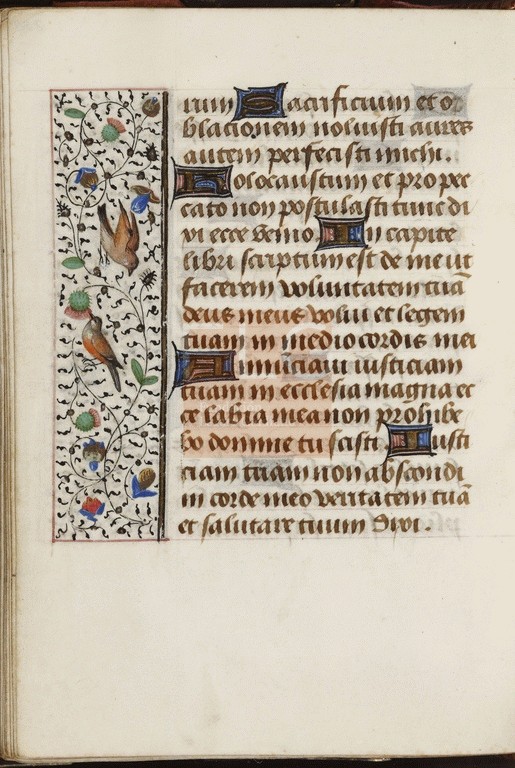 rum Sacrificium et ob
blacionem noluisti aures
autem perfecisti michi.
Holocaustum et pro pec
cato non postulasti tunc di
xi ecce venio In capite
libri scriptum est de me ut
facerem voluntatem tuā
deus meus volui et legem
tuam in medio cordis mei
Annuciavi iusticiam
tuam in ecclesia magna ec
ce labia mea non prohibe
bo domine tu scisti. Iusti
ciam tuam non abscondi
in corde meo veritatem tuā
et salutare tuum Dixi.